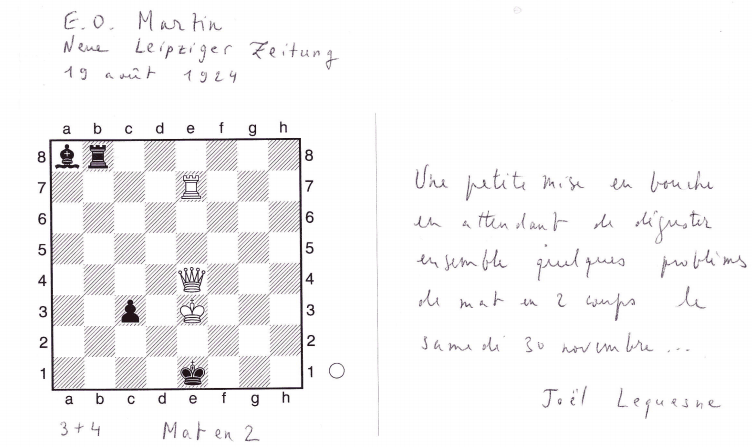 E.O. Martin
Neue Leipziger Zeitung
19 août 1924
a b c d e f g h
8 8
7 7
6 6
5 5
4 4
3 3
2 2
1 1
a b c d e f g h
3+4 Mat en 2
Une petite mise en bouche
en attendant de déguster
ensemble quelques problèmes
de mat en 2 coups le
samedi 30 novembre...
Joël Lequesne